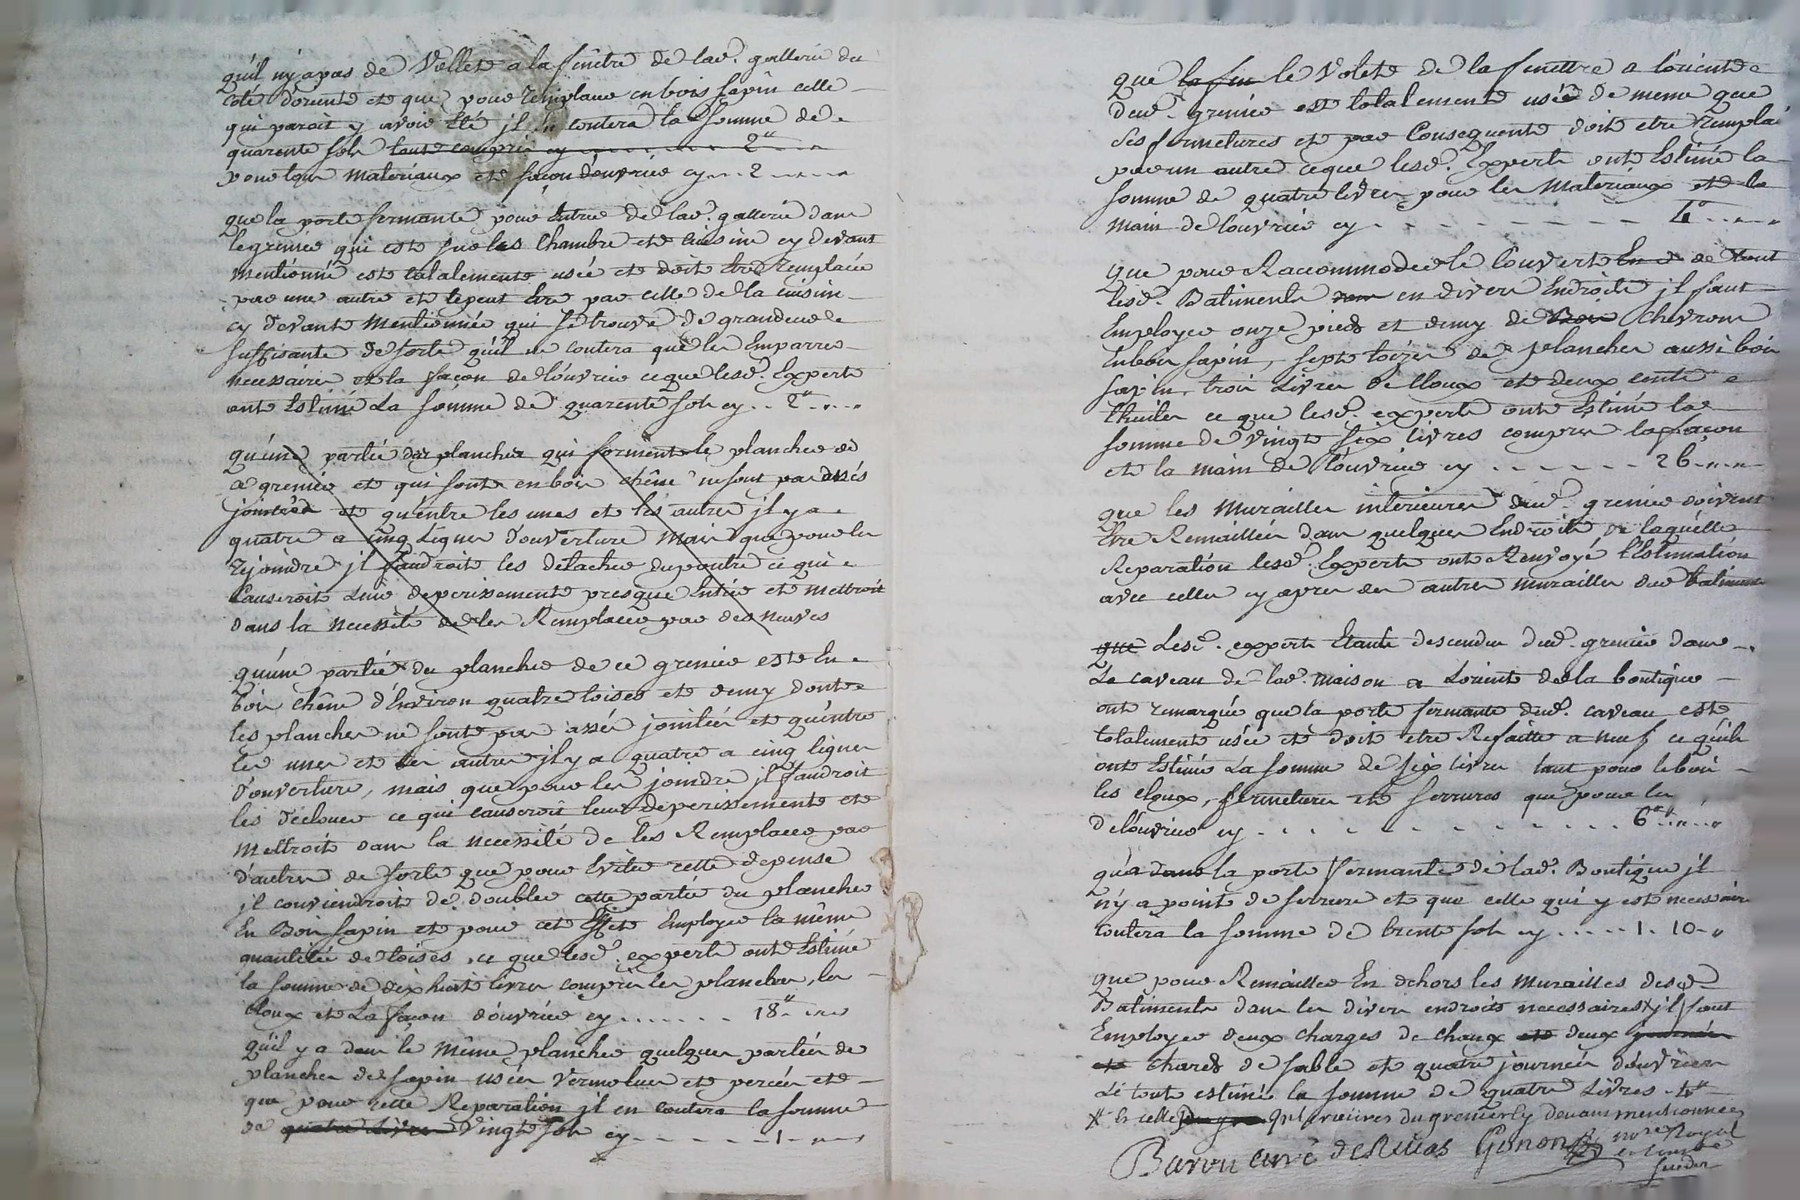 qu'il n'y a pas de Vollets a la fenêtre de lad. gallerie du
coté d'orient et que pour remplace en bois sapin celle
qui paroit y avoir été jl en coutera la somme de
quarente sols tant compris cy . . . 2
pour les materiaux et façon d'ouvrier cy . . . 2
que la porte fermante pour Entrer de lad. gallerie dans
le grenier qui est sur les Chambre et cuisine cy devant
mentionné est totalement usée et doit être remplacée
par une autre et le peut être par celle de la cuisine
cy devant mentionnée qui se trouve de grandeur
suffisante de sorte qu'il ne coutera que les Emparres
necessaires et la façon de l'ouvrier ce que lesd. Experts
ont Estimé La somme de quarente sols cy . . 2
qu'une partie des planches qui forment le plancher de
ce grenier et qui sont en bois chêne ne sont pas assés
jointées et qu'entre les unes et les autres jl y a
quatre a cinq Lignes d'ouverture mais que pour les
rejoindre jl faudroit les détacher du poutre ce qui
Causeroit Leur deperissement presque Entier et mettroit
dans la necessité de les Remplacer par des neuves
qu'une partie du plancher de ce grenier est En
bois chêne d'Environ quatre toises et demy dont
les planches ne sont pas assés jointées et qu'entre
les unes et les autres jl y a quatre a cinq lignes
d'ouverture, mais que pour les joindre jl faudroit
les declouer ce qui causeroit leur deperissement et
mettroit dans la necessité de les Remplacer par
d'autres de sorte que pour Eviter cette depense
jl conviendroit de doubler cette partie du plancher
En Bois sapin et pour cet Effet Employer la même
quantitée de toises, ce que lesd. experts ont Estimé
la somme de dix huit livres compris les planches, les
cloux et La façon d'ouvrier cy . . . . . . . 18
qu'il y a dans le même plancher quelques parties de
planches de sapin usées vermolues et percées et
que pour cette Reparation jl en coutera la somme
de quatre Livres vingt sols cy . . . . . 1
que la fen le volets de la fenettre a l'orient
dud. grenier est totalement usée de meme que
ses fermetures et par Consequent doit etre remplacé
par un autre ce que lesd. Experts ont Estimé la
somme de quatre livres pour les Materiaux et la
main de l'ouvrier cy . . . . . . 4
que pour Raccommoder le Couvert de tout
lesd. Batiments en divers Endroits jl faut
Employer onze pieds et demy de Chevrons
En bois sapin, sept toizes de planches aussi bois
sapin, trois Livres de Cloux et deux cents
thuiles ce que lesd. experts ont Estimé la
somme de vingt six livres compris la façon
et la main de l'ouvrier cy . . . . . . 26
que les Murailles interieures dud. grenier doivent
Etre Remaillées dans quelques Endroits de laquelle
Reparation lesd. Experts ont Renvoyé l'Estimation
avec celles cy apres des autres murailles dud batiment
que Lesd. experts Etants descendus dud. grenier dans
Le caveau de lad. maison a Lorient de la boutique
ont remarqué que la porte fermante dud. caveau est
totalement usée et doit etre Refaitte a neuf ce qu'ils
ont Estimé La somme de six livres tant pour le bois
les cloux, fermetures et ferrures que pour la
de l'ouvrier cy . . . . . . . . . . . 6
qu'a dans la porte fermante de lad. Boutique jl
n'y a point de serrure et que celle qui y est necessaire
coutera la somme de trente sols cy . . . . . 1. 10
que pour Remailler En dehors les Murailles desd.
Batiments dans les divers endroits necessaires X jl faut
Employer deux charges de chaux et deux journées
et chards de sable et quatre journées d'ouvriers
Le tout estimé la somme de quatre Livres . 4
X et celles interieures du grenier cy devant mentionnées
Baron curé de Rivas Gonon nore Royal